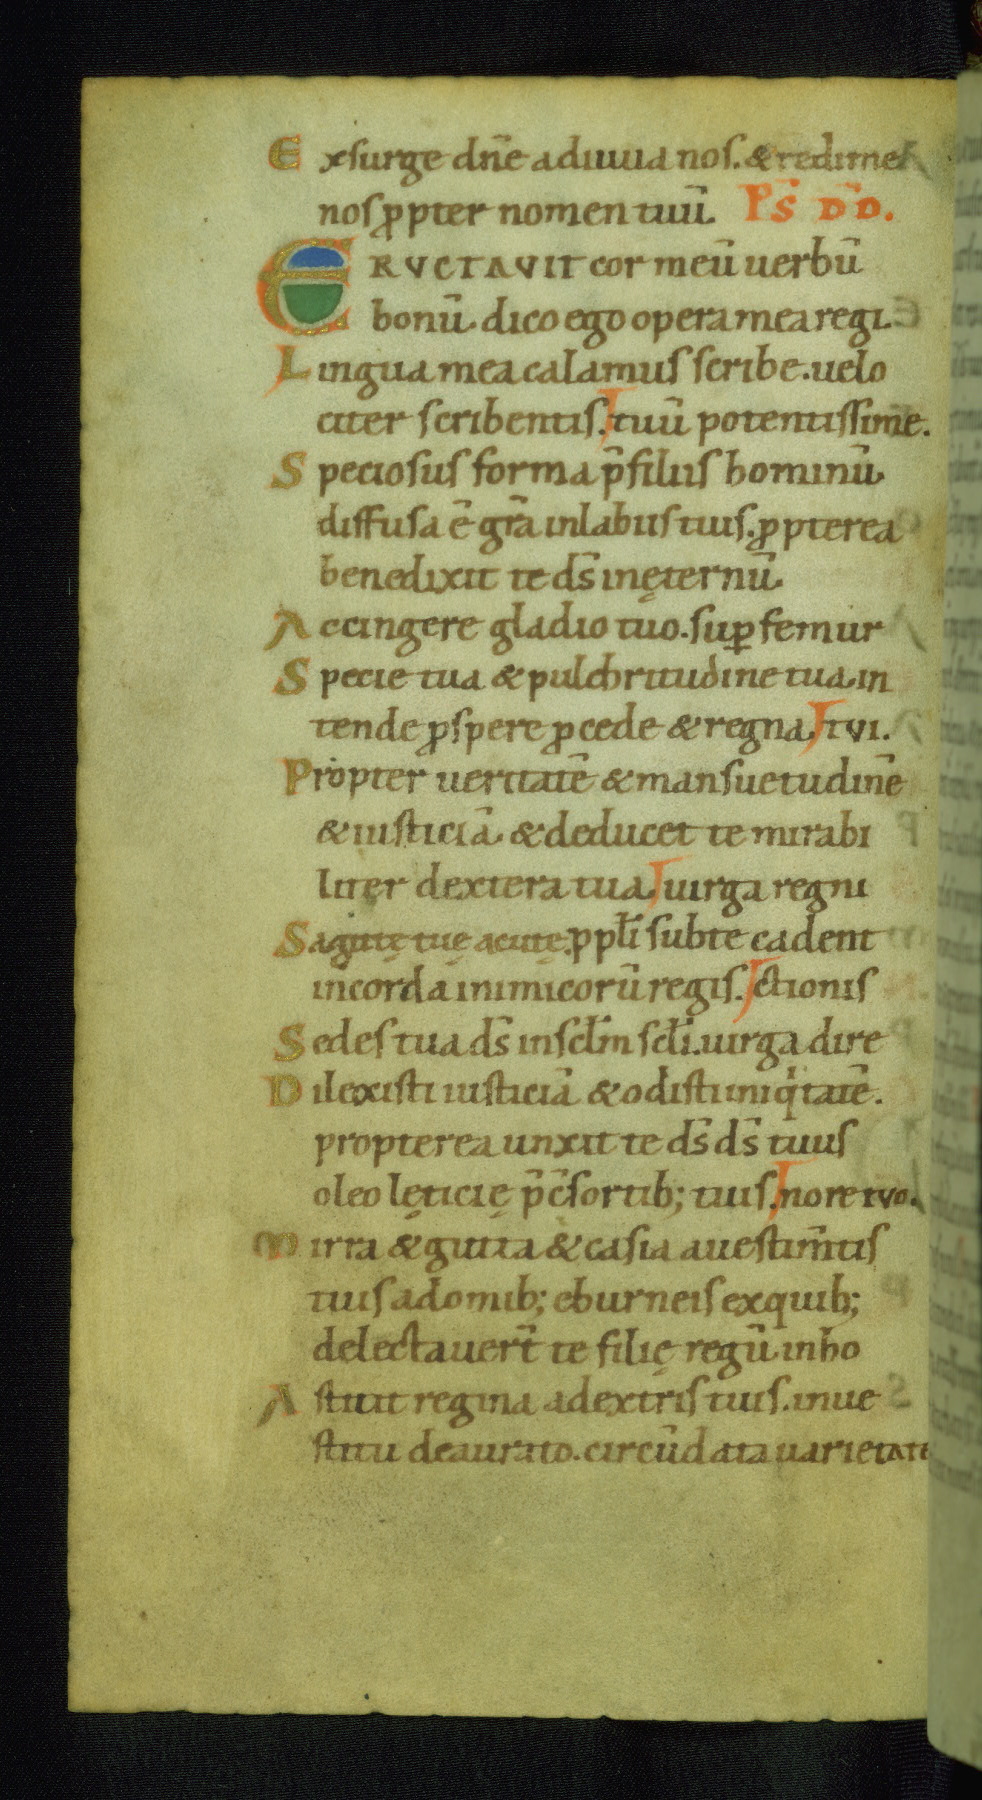 Exsurge dn̄e adiuua nos. & redime
nos ꝓpter nomen tuū. PS̄ DD̄.
ERVCTAVIT cor meū uerbū
bonū. dico ego opera mea regi.
Lingua mea calamus scribe. uelo
citer scribentis. tuū potentissime.
Speciosus forma p̄ filiis hominū.
diffusa ē gr̄a inlabiis tuis. ꝓpterea
benedixit te ds̄ inęternū.
Accingere gladio tuo. suꝑ femur
Specie tua & pulchritudine tua. in
tende ꝓspere ꝓcede & regna. tvi.
Propter ueritatē & mansuetudinē
& iusticiā. & deducet te mirabi
liter dextera tua. uirga regni
Sagittę tuę acutę. ppl̄i subte cadent
incorda inimicorū regis. ctionis
Sedes tua ds̄ inscl̄m scl̄i. uirga dire
Dilexisti iusticiā & odisti iniqͥtatē.
propterea unxit te ds̄ ds̄ tuus
oleo lęticię p̄ c̄sortib; tuis. nore tvo.
Mirra & gutta & casia auestim̄tis
tuis adomib; eburneis exquib;
delectauer̄t te filię regū inho
Astitit regina adextris tuis. inue
stitu deaurato. circūdata uarietate